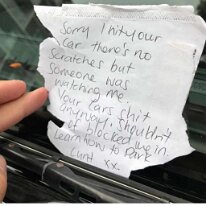 Sorry I hit your
car there's no
scratches but
someone was
watching me.
Your cars shit
anyway, shouldn't
of blocked me in
learn how to park
cunt xx.